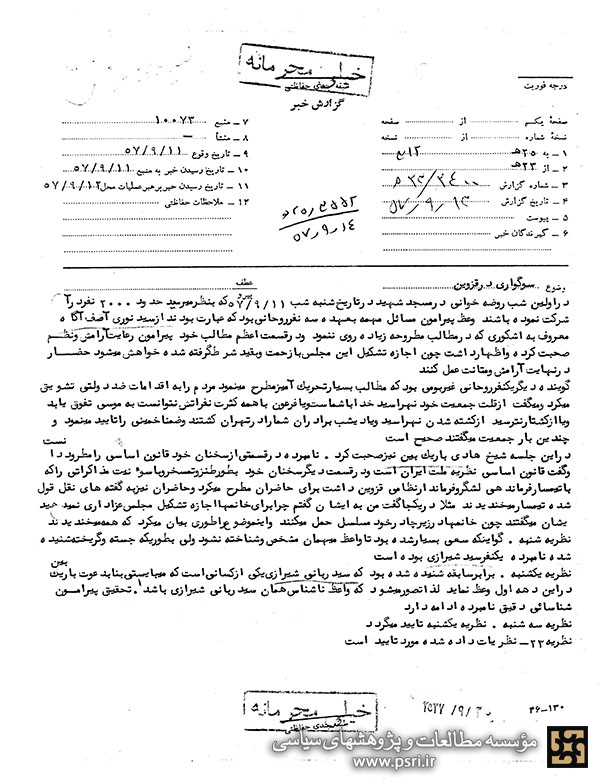 خیلی محرمانه
درجه فوریت
گزارش خبر
صفحه یکم از صفحه
نسخه شماره از نسخه
۱ ـ به ۲۵۰هـ ۱۲
۲ ـ از ۲۳هـ
۳ ـ شماره گزارش ۲۳/۲۴۰۰هـ
۴ ـ تاریخ گزارش ۵۷/۹/۱۳
۵ ـ پیوست
۶ ـ گیرندگان خبر
۷ ـ منبع ۱۰۰۷۳
۸ ـ منشأ ـ
۹ ـ تاریخ وقوع ۵۷/۹/۱۱
۱۰ ـ تاریخ رسیدن خبر به منبع ۵۷/۹/۱۱
۱۱ ـ تاریخ رسیدن خبر برهبر عملیات محل ۵۷/۹/۱۲
۱۲ ـ ملاحظات حفاظتی
۵۷/۹/۱۴
وضوع سوگواری در قزوین
عطف
در اولین شب روضه خوانی در مسجد شهید در تاریخ شنبه شب ۵۷/۹/۱۱ که بنظر میرسید حدود ۲۰۰۰ نفر در آن
شرکت نموده باشند وعظ پیرامون مسائل مهمه بعهده سه نفر روحانی بود که عبارت بودند از سید نوری آصف آگاه
معروف به اشکوری که در مطالب مطروحه زیاده روی ننمود ودر قسمت اعظم مطالب خود پیرامون رعایت آرامش ونظم
صحبت کرده واظهار داشت چون اجازه تشکیل این مجلس بازحمت وبقید شرط گرفته شده خواهش میشود حضار
در نهایت آرامش ومتانت عمل کنند
گوینده دیگر یکنفر روحانی غیر بومی بود که مطالب بسیار تحریک آمیز مطرح مینمود مردم را به اقدامات ضد دولتی تشویق
میکرد ومیگفت از قلت جمعیت خود نهراسید خدا با شماست ویا فرعون با همه کثرت نفراتش نتوانست به موسی تفوق یابد
ویا از کشتار نترسید از کشته شدن نهراسید ویاد یشب برادران شما را در تهران کشتند وضمنا خمینی را تایید مینمود و
چندین بار جمعیت میگفتند صحیح است
در این جلسه شیخ هادی باریک بین نیز صحبت کرد . نامبرده در قسمتی از سخنان خود قانون اساسی را مطرود دا نست
وگفت قانون اساسی نظریه ملت ایران است ودر قسمت دیگر سخنان خود بطور طنز وتمسخر وبا سوء نیت مذاکراتی را که
با تیمسار فرماندهی لشگر وفرماندار نظامی قزوین داشت برای حاضران مطرح میکرد وحاضران نیز به گفته های نقل قول
شده تیمسار میخندیدند مثلا در یکجا گفت من به ایشان گفتم چرا برای خانمها اجازه تشکیل مجلس عزاداری نمید هید
یشان میگفتند چون خانمها در زیر چادر خود مسلسل حمل میکنند واینموضوع را طوری بیان میکرد که همه میخندیدند
نظریه شنبه . گو اینکه سعی بسیار شده بود تا واعظ میهمان مشخص وشناخته نشود ولی بطوریکه جسته وگریخته شنیده
شده نامبرده یکنفر سید شیرازی بوده است
نظریه یکشنبه . برابر سابقه شنیده شده بود که سید ربانی شیرازی یکی از کسانی است که میبایستی بنا بدعوت باریک بین
در این دهه اول وعظ نماید لذا تصور میشود که واعظ ناشناس همان سید ربانی شیرازی باشد . تحقیق پیرامون
شناسائی دقیق نامبرده ادامه دارد
نظریه سه شنبه . نظریه یکشنبه تایید میگردد
نظریه ۲۳ـ نظریات داده شده مورد تایید است
خیلی محرمانه
۴۶-۱۳۰
مؤسسه مطالعات و پژوهشهای سیاسی
www.psri.ir